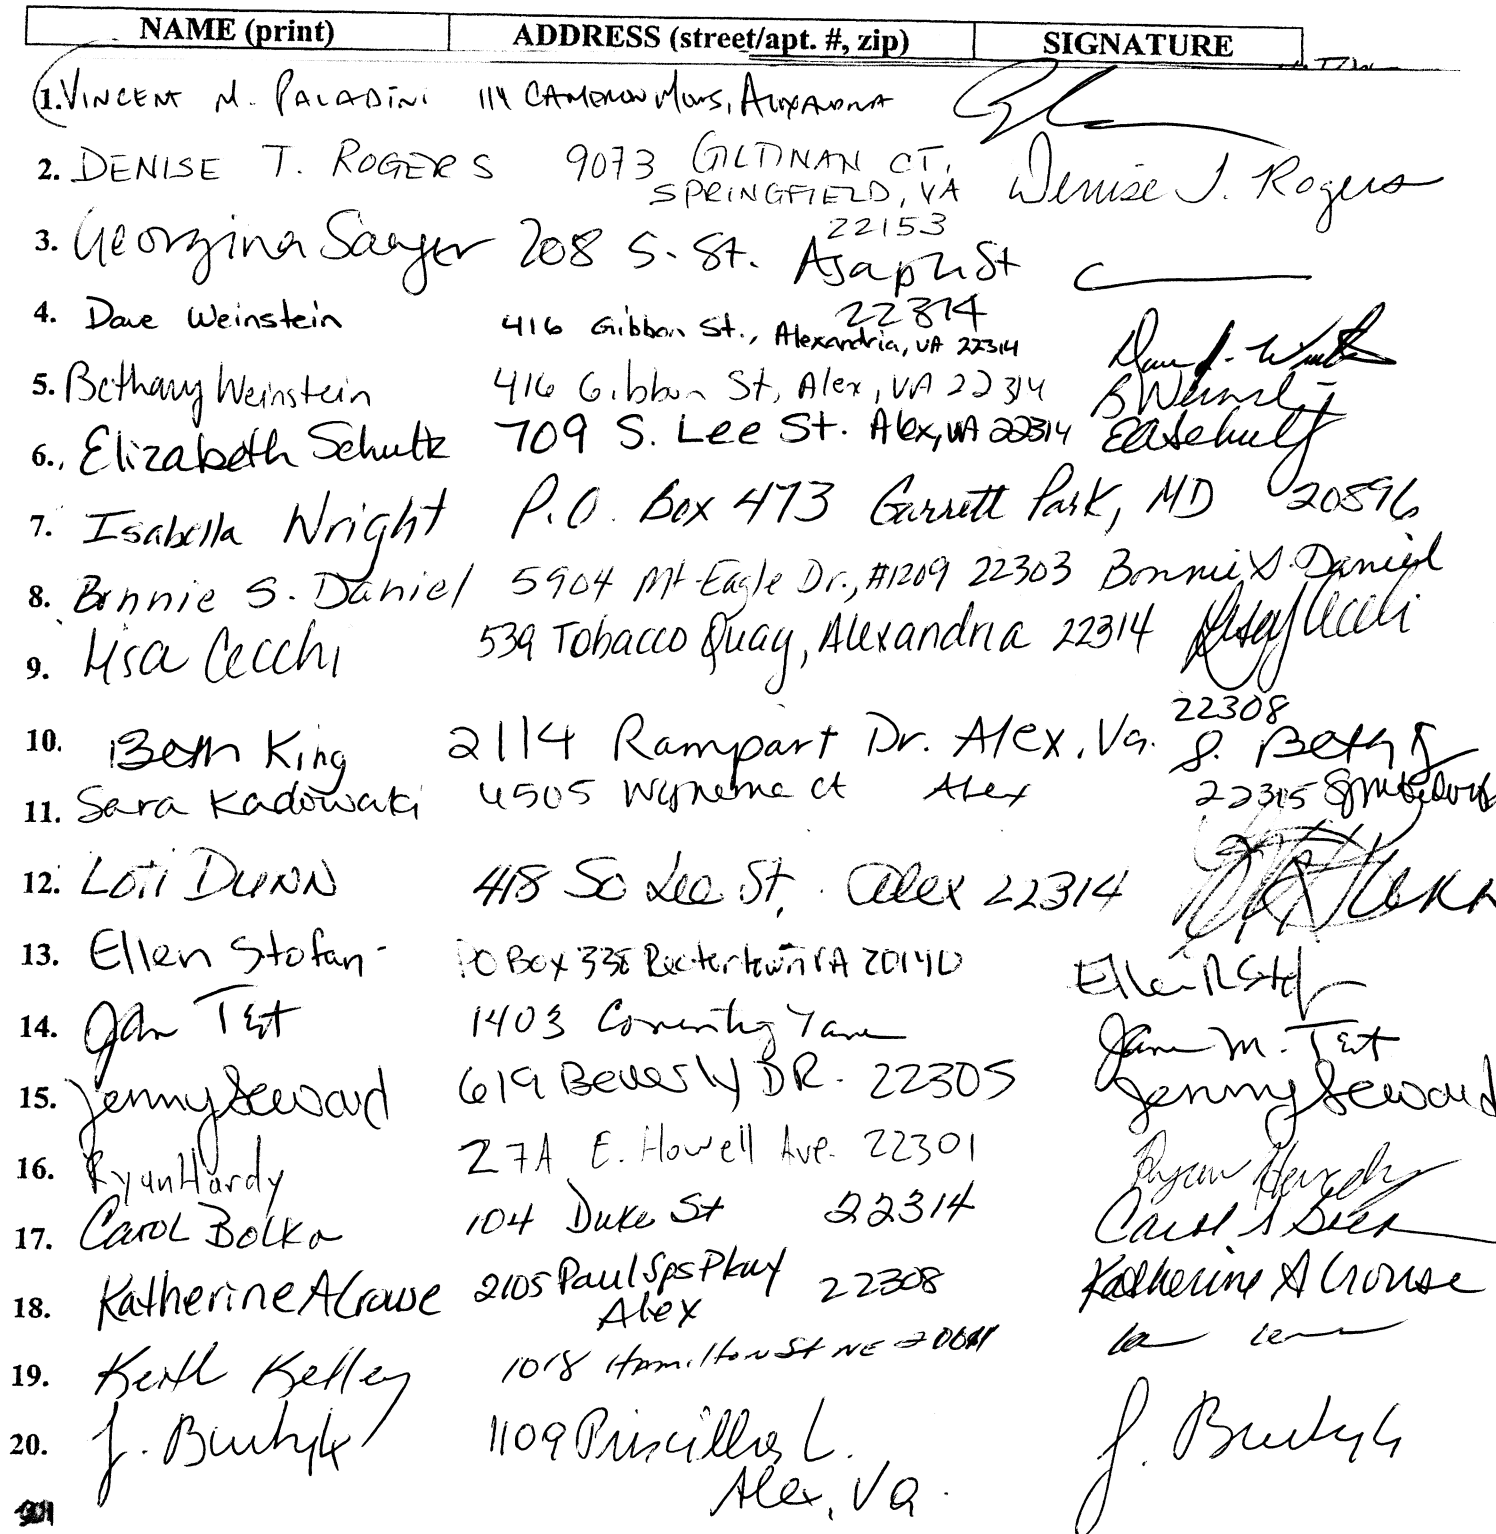 NAME (print) ADDRESS (street/apt. #, zip) SIGNATURE
1. VINCENT M. PALADINI 114 CAMERON MEWS, ALEXANDRIA
2. DENISE T. ROGERS 9073 GILTINAN CT, Denise T. Rogers
SPRINGFIELD, VA
22153
3. Georgina Sanger 208 S. St. Asaph St
22314
4. Dave Weinstein 416 Gibbon St., Alexandria, VA 22314
5. Bethany Weinstein 416 Gibbon St, Alex, VA 22314 B Weinstein
6. Elizabeth Schultz 709 S. Lee St. Alex, VA 22314 EASchultz
7. Isabella Wright P.O. Box 473 Garrett Park, MD 20896
8. Bonnie S. Daniel 5904 Mt Eagle Dr., #1209 22303 Bonnie S. Daniel
9. Lisa Cecchi 539 Tobacco Quay, Alexandria 22314
22308
10. Beth King 2114 Rampart Dr. Alex, Va. S. Beth K
11. Sara Kadowaki 4505 Wynema ct Alex 22315
12. Lori DUNN 418 So Lee St. Alex 22314
13. Ellen Stofan PO Box 338 Rectortown VA 20140 Ellen R Stof
14. Jan Test 1403 Coventry Lane Jan M. Test
15. Jenny Seward 619 Beverly DR. 22305 Jenny Seward
16. Ryan Hardy 27A E. Howell Ave. 22301 Ryan Hardy
17. CAROL BOLKA 104 Duke St 22314
18. Katherine A Crouse 2105 Paul Sps Pkwy 22308 Katherine A Crouse
Alex
19. Keith Kelley 1018 Hamilton St NE
20. J. 1109 Priscilla L. J.
Alex, Va.